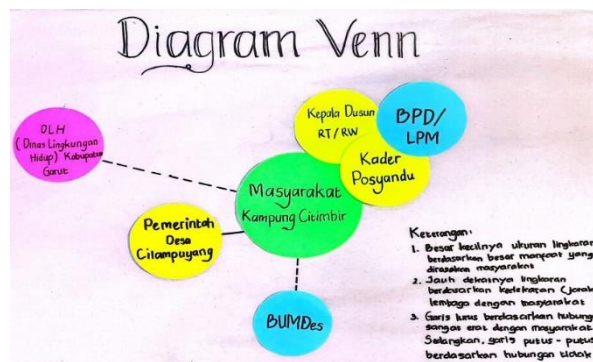 Diagram Venn
DLH
( Dinas Lingkungan
Hidup) Kabupaten
Garut
Kepala Dusun
RT / RW
BPD/
LPM
Kader
Posyandu
Masyarakat
Kampung Citimbir
Pemerintah
Desa
Cilampuyang
BUMDes
Keterangan:
1. Besar kecilnya ukuran lingkaran
berdasarkan besar manfaat yang
dirasakan masyarakat
2. Jauh dekatnya lingkaran
berdasarkan kedekatan (jarak
lembaga dengan masyarakat
3. Garis lurus berdasarkan hubung
sangat erat dengan masyarakat
Sedangkan, garis putus - putus
berdasarkan hubungan tidak